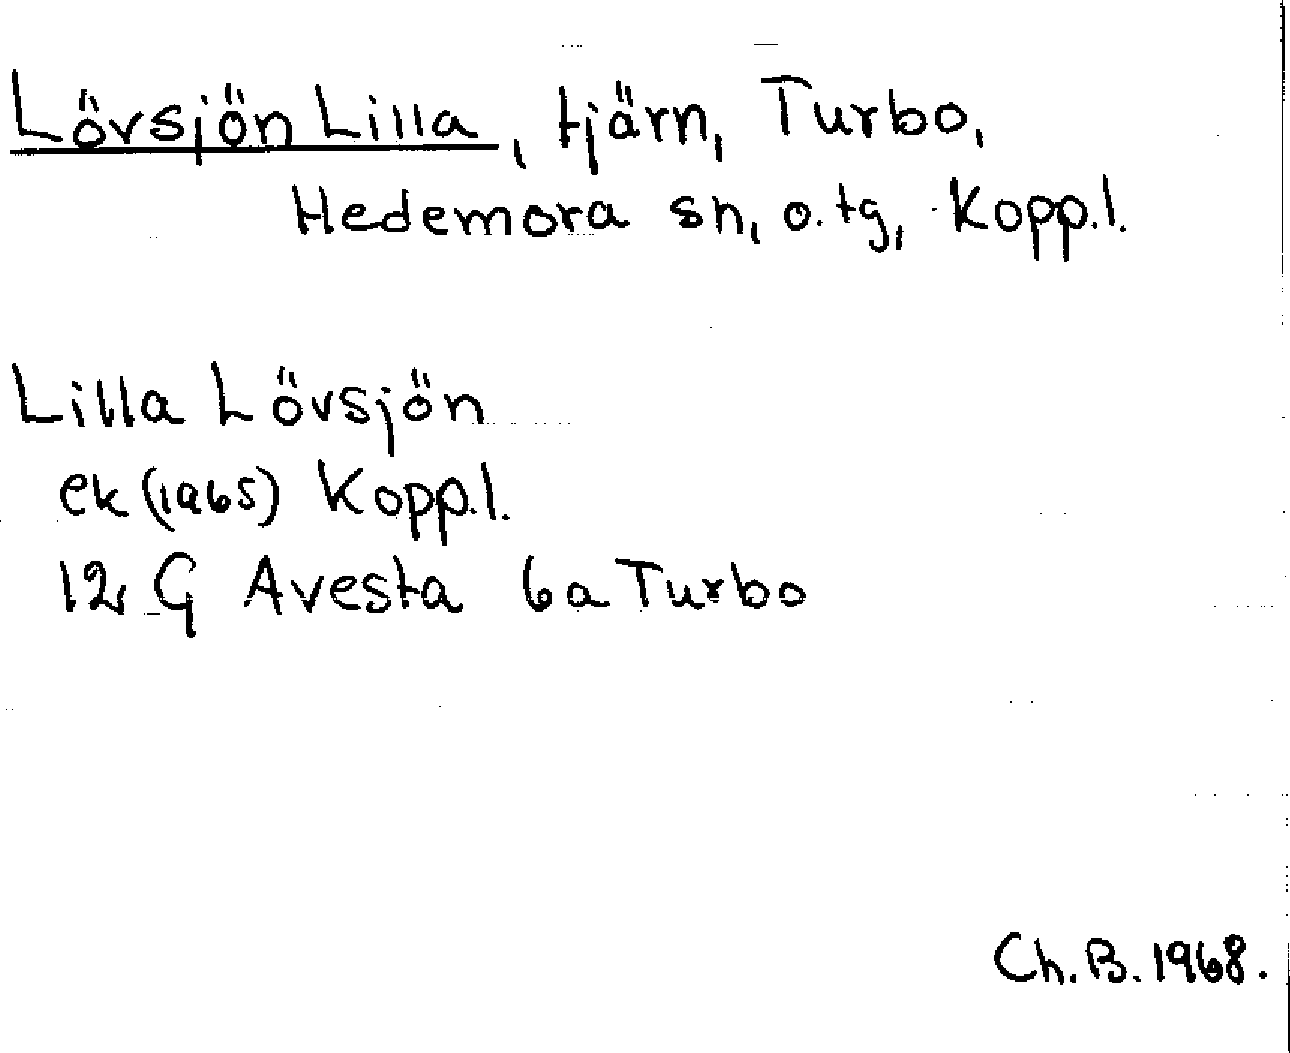 Lövsjön Lilla, tjärn, Turbo,
Hedemora sn, o. tg, Kopp.l.
Lilla Lövsjön
ek (1965) Kopp.l.
12 G Avesta 6a Turbo
Ch. B. 1968.